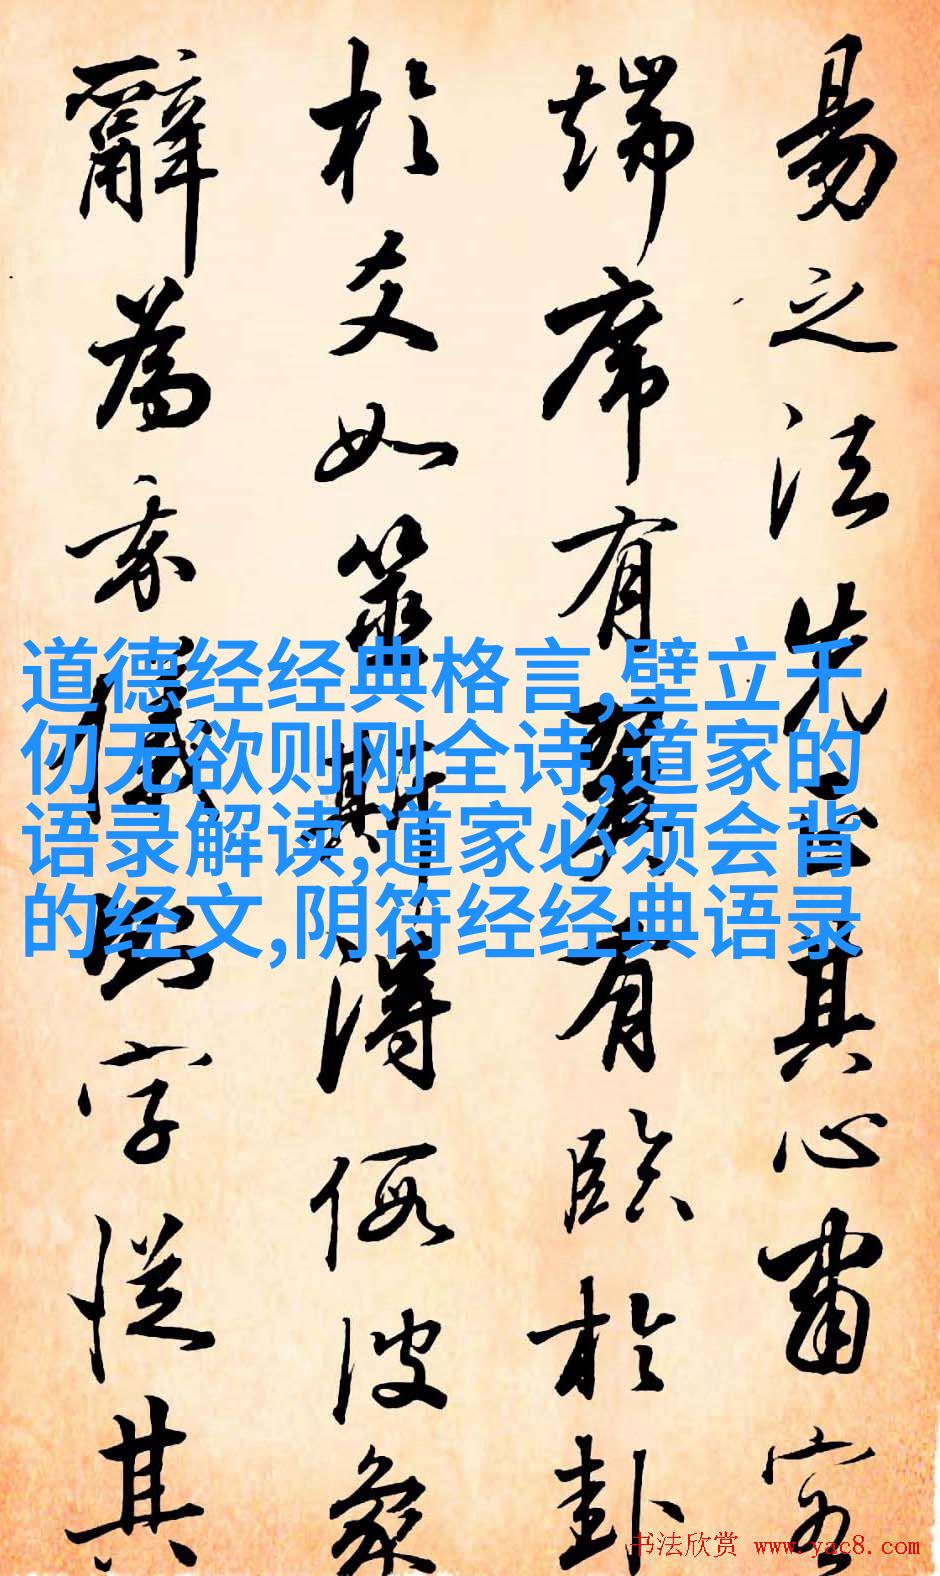 易之法先正其心肅容
端席有翼有臨於卦
於爻如筮斯得假彼象
辭為我儀則字從其
道德经经典格言,壁立千
仞无欲则刚全诗,道家的
语录解读,道家必须会背
的经文,阴符经经典语录
书法欣赏 www.yac8.com